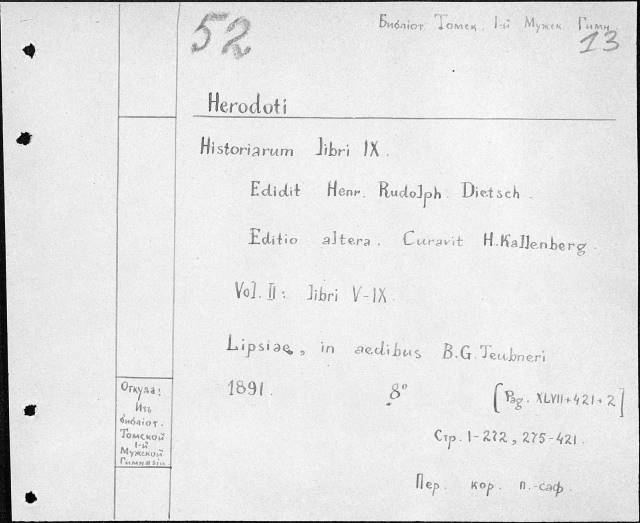 52
Библіот. Томск. 1-й Мужск. Гимн.
13
Herodoti
Historiarum libri IX.
Edidit Henr. Rudolph. Dietsch.
Editio altera. Curavit H. Kallenberg.
Vol. II: libri V-IX.
Lipsiae, in aedibus B.G. Teubneri
1891. 8° [Pag. XLVII+421+2]
Стр. 1-272, 275-421.
Пер. кор. п.-саф.
Откуда:
Изъ
библіот.
Томской
1-й
Мужской
Гимназіи